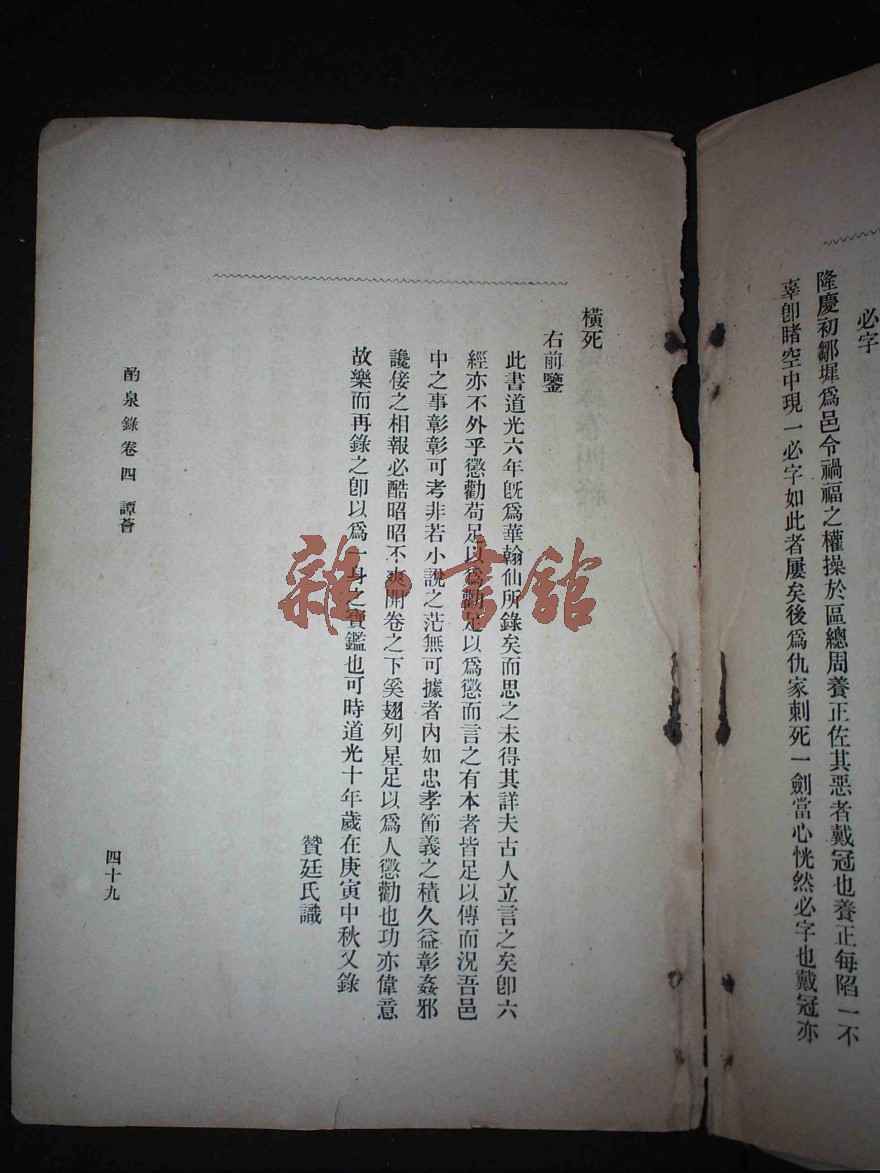 必字
隆慶初鄒墀爲邑令禍福之權操於區總周養正佐其惡者戴冠也養正每陷一不
辜卽睹空中現一必字如此者屢矣後爲仇家刺死一劍當心恍然必字也戴冠亦
橫死
右前鑒
此書道光六年旣爲華翰仙所錄矣而思之未得其詳夫古人立言之矣卽六
經亦不外乎懲勸苟足以爲勸足以爲懲而言之有本者皆足以傳而況吾邑
中之事彰彰可考非若小說之茫無可據者內如忠孝節義之積久益彰姦邪
讒佞之相報必酷昭昭不爽開卷之下奚翅列星足以爲人懲勸也功亦偉意
故樂而再錄之卽以爲一身之寶鑑也可時道光十年歲在庚寅中秋又錄
贊廷氏識
酌泉錄卷四 譚薈
四十九
雜·書館